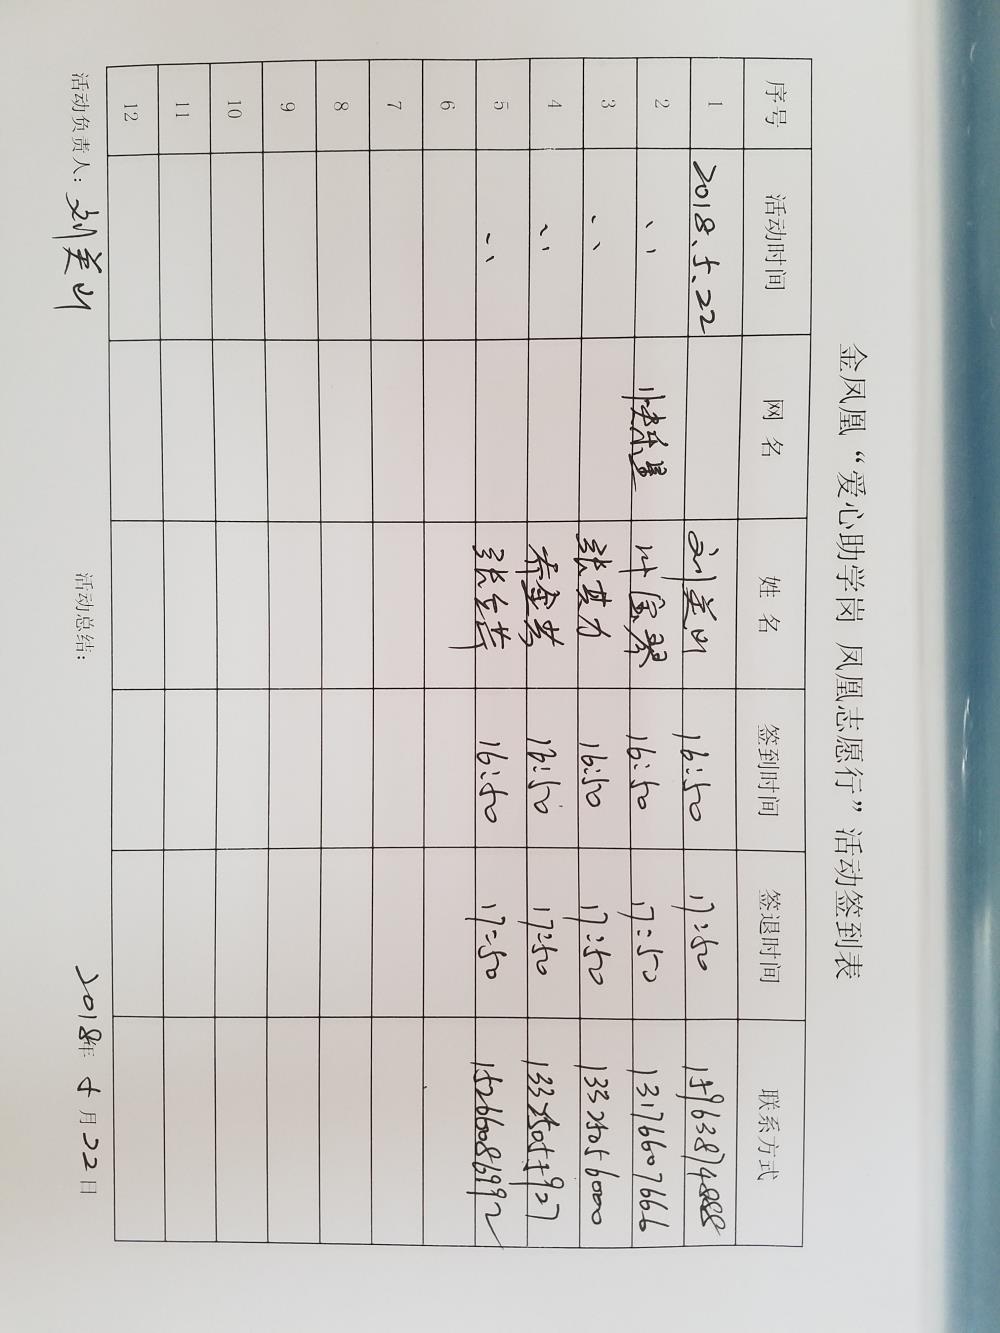 金凤凰“爱心助学岗 凤凰志愿行”活动签到表
序号 活动时间 网 名 姓 名 签到时间 签退时间 联系方式
1 2018.5.22 刘美山 16:50 17:50 15963874888
2 、、 快乐星 叶宝琴 16:50 17:50 13176607666
3 、、 张其力 16:50 17:50 13325056000
4 、、 乔金芳 16:50 17:50 13325055927
5 、、 张 16:50 17:50 15266086992
6
7
8
9
10
11
12
活动负责人：刘美山 活动总结： 2018年 5月22日